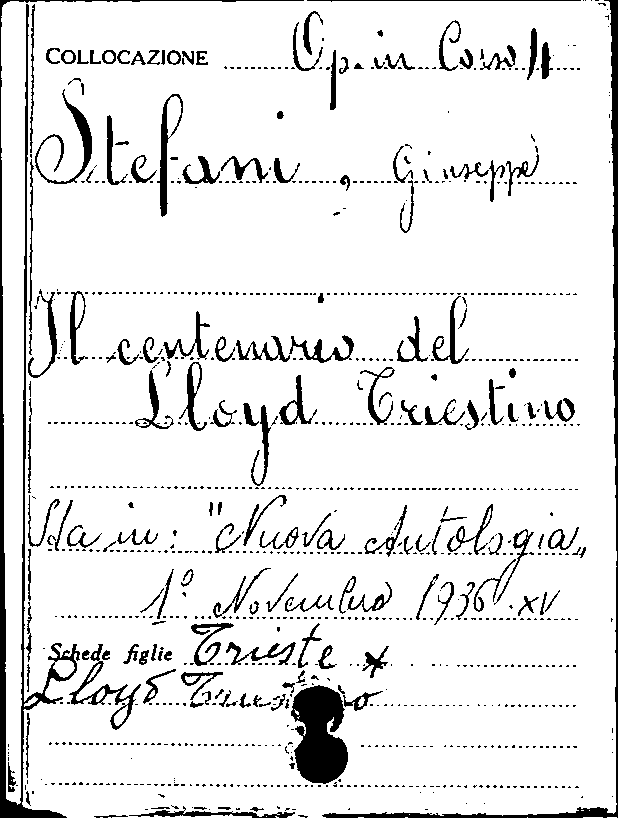 COLLOCAZIONE Op. in Corso 4
Stefani, Giuseppe
Il centenario del
Lloyd Triestino
Sta in: "Nuova Antologia„
1º Novembre 1936. XV
Schede figlie Trieste *
Lloyd Triestino